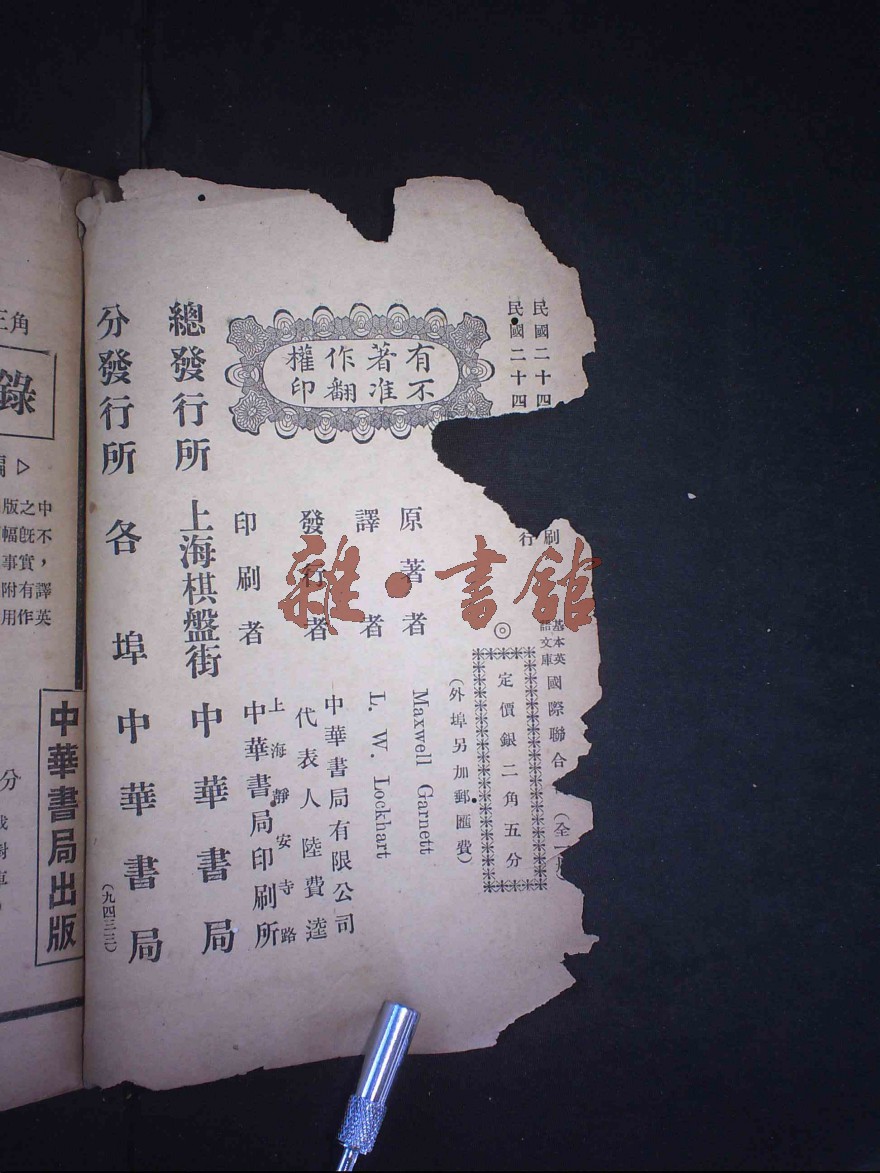 民國二十四
民國二十四
刷
行
基本英
語文庫
國際聯合
(全一
◎
定價銀二角五分
(外埠另加郵匯費)
有著作權
不准翻印
原著者 Maxwell Garnett
譯者 L. W. Lockhart
發行者
中華書局有限公司
代表人 陸費逵
印刷者
上海靜安寺路
中華書局印刷所
總發行所 上海棋盤街 中華書局
分發行所 各埠 中華書局
(九四三三)
雜·書館
角
錄
中
版之
不
幅既
，
事實
譯
附有
英
用作
中華書局出版
分